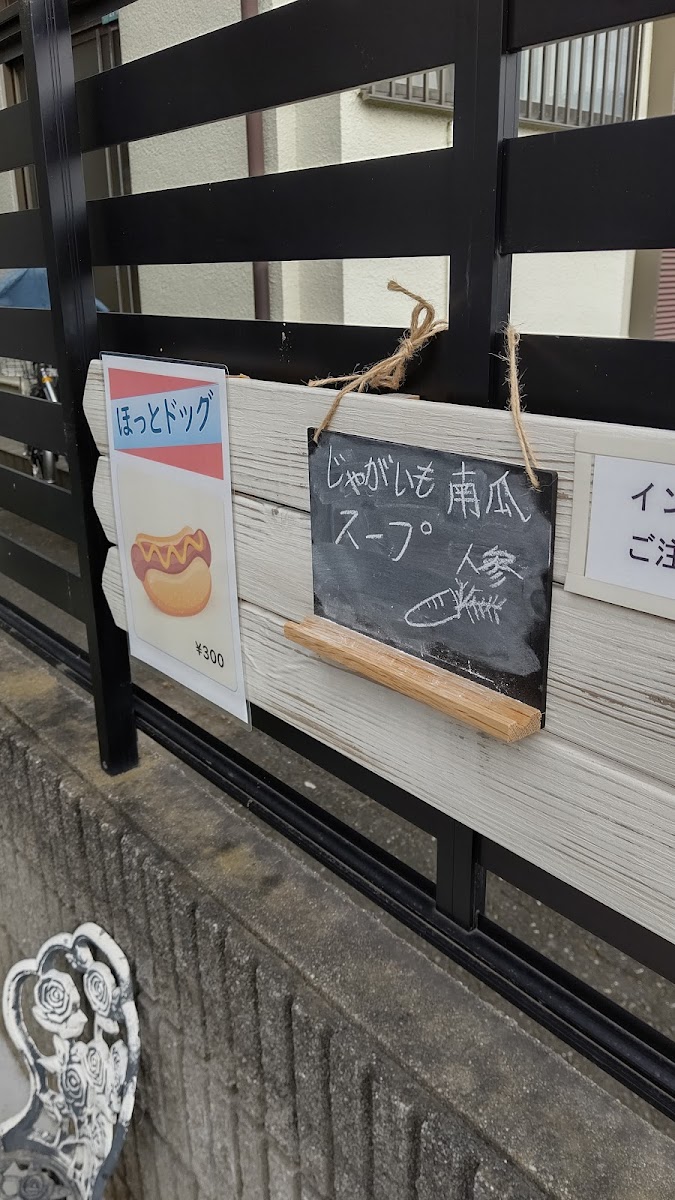 ほっとドッグ
¥300
じゃがいも 南瓜
スープ
人参
イン
ご注